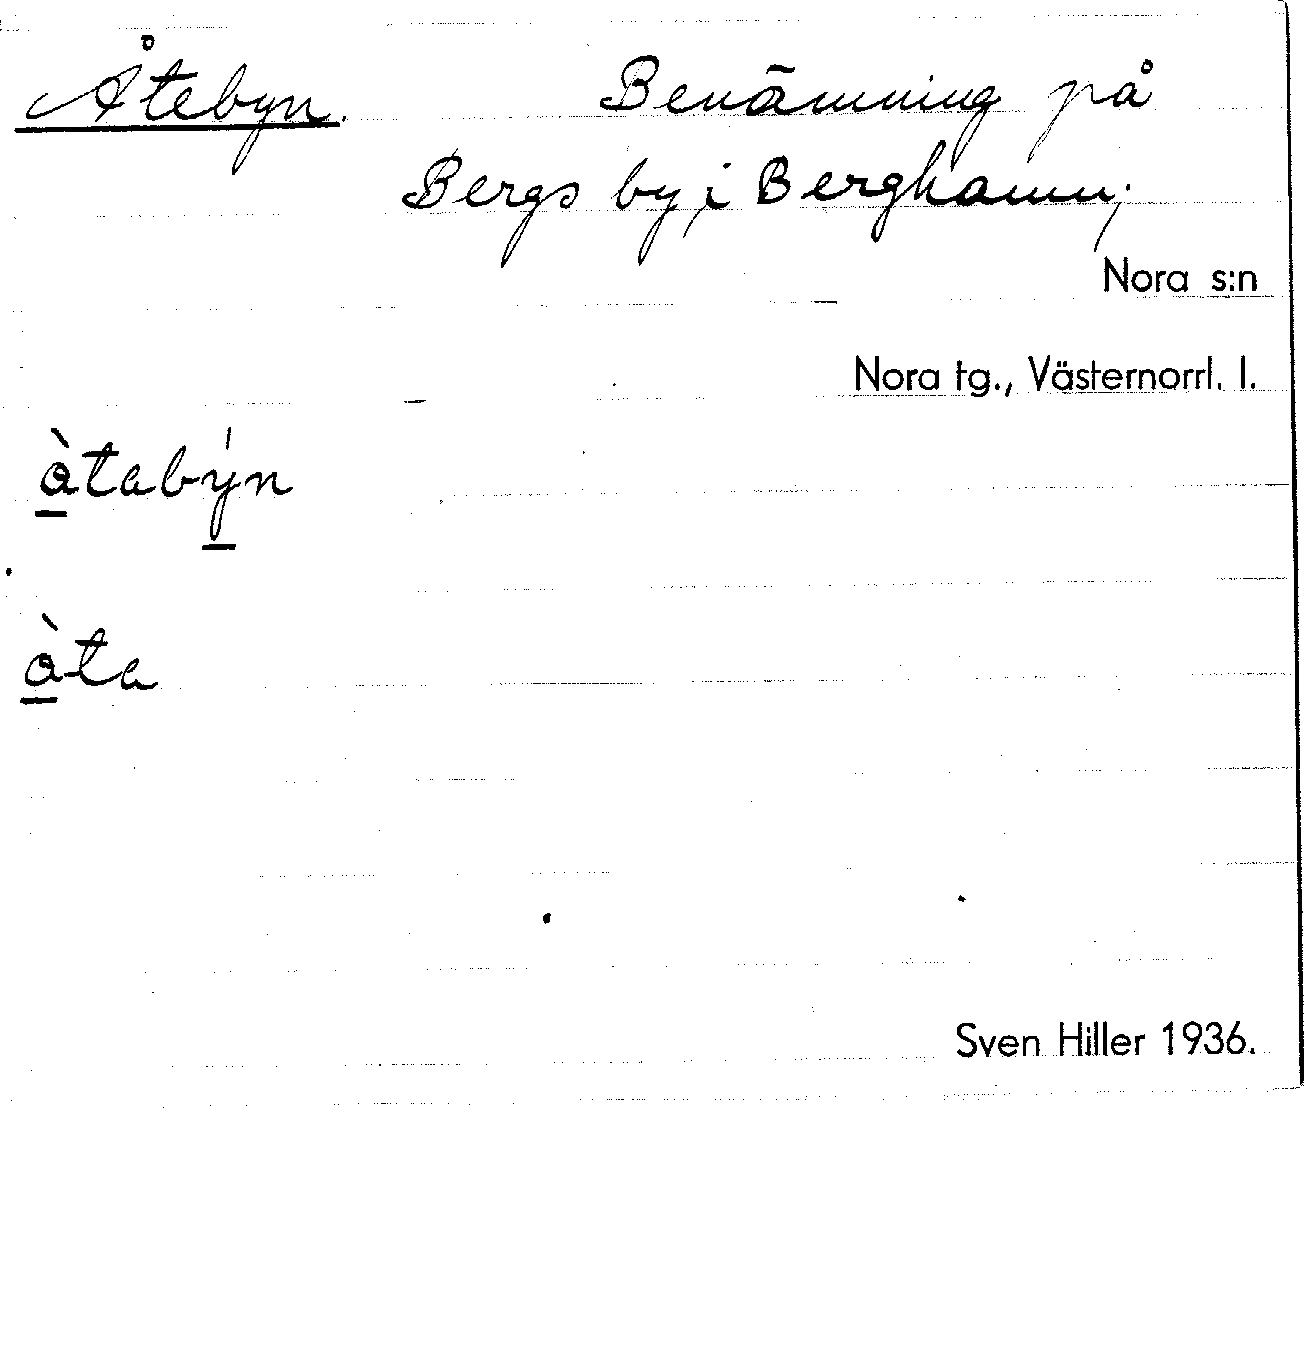 Åtebyn. Benämning på
Bergs by, i Berghamn;
Nora s:n
Nora tg., Västernorrl. l.
åtabýn
åta
Sven Hiller 1936.